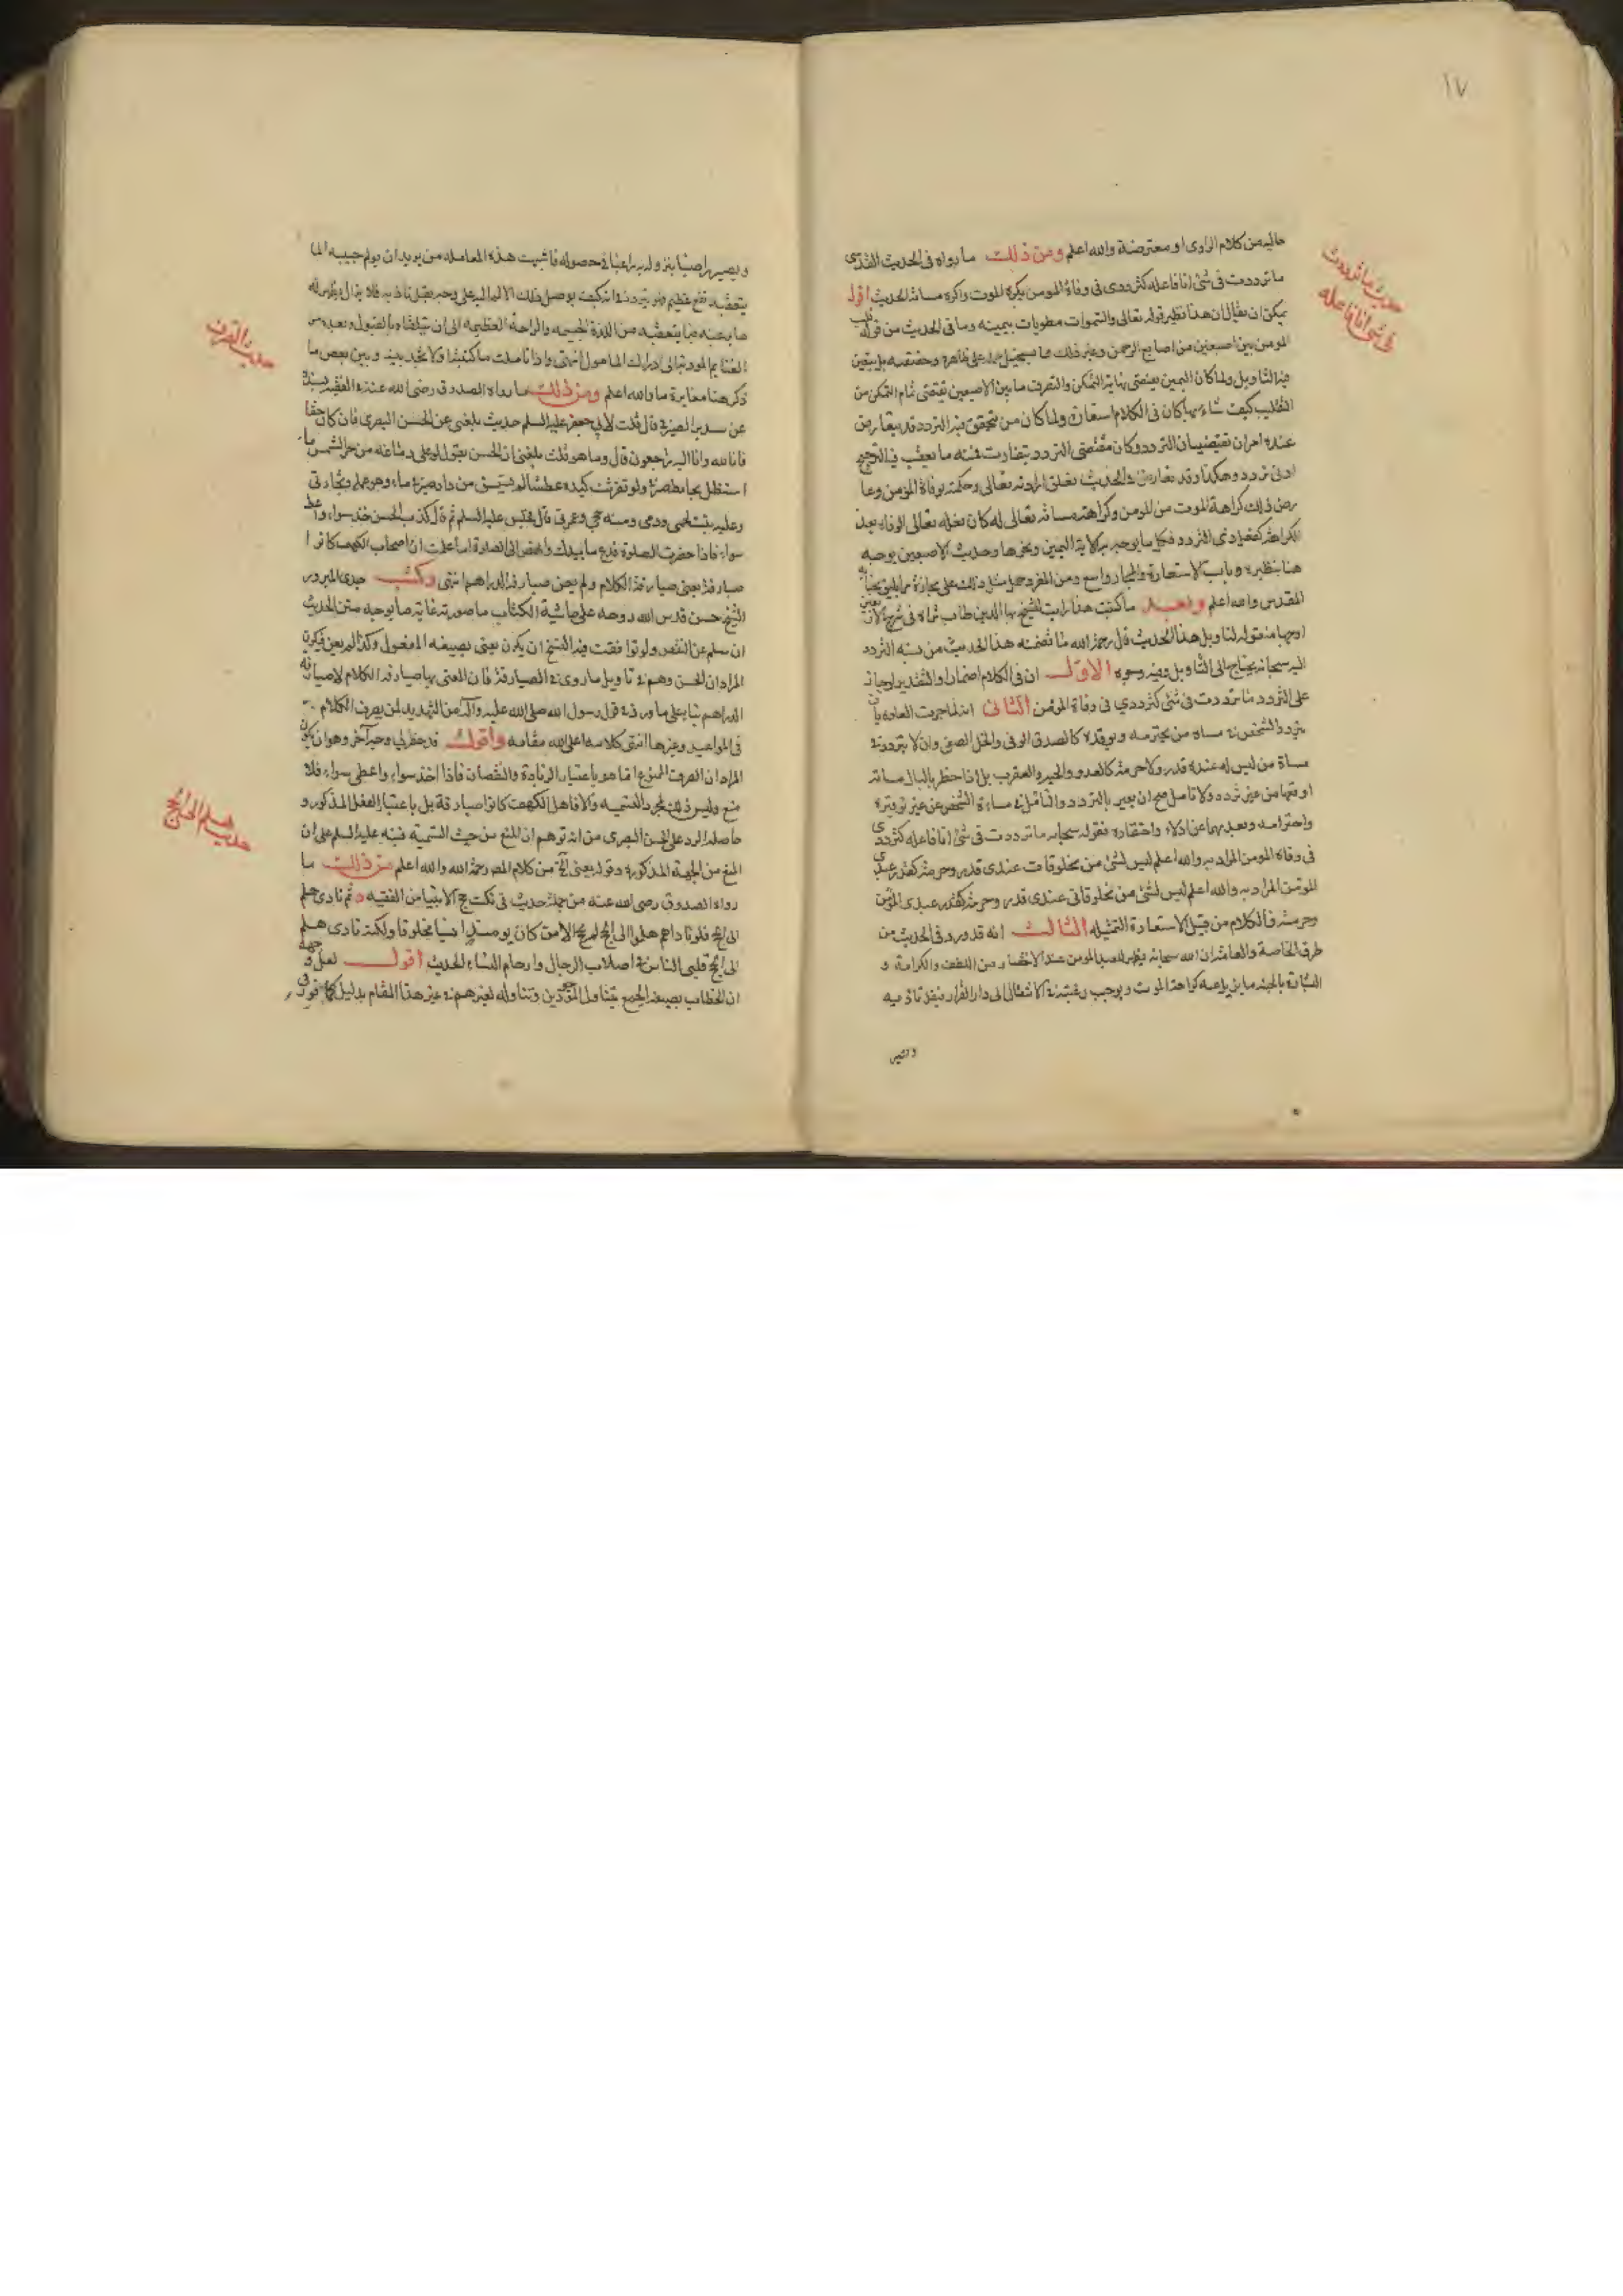 ١٧
حاليه من كلام الراوى او معترضة والله اعلم ومن ذلك ما رواه فى الحديث القدسى
ما ترددت فى شئ انا فاعله كترددى فى وفاة المومن يكره الموت واكره مساته الحديث اقول
يمكن ان يقال ان هذا نظير قوله تعالى والسموات مطويات بيمينه وما فى الحديث من قوله قلب
المومن بين اصبعين من اصابع الرحمن وغير ذلك مما يستحيل حمله على ظاهره وحقيقته بل يتعين
فيه التاويل ولما كان اليمين يقتضى نهاية التمكن والتصرف ما بين الاصبعين يقتضى تمام التمكن من
التقليب كيف شاء بها كان فى الكلام استعارة ولما كان من يتحقق فيه التردد قد يتعارض
عنده امران يقتضيان التردد وكان مقتضى التردد يتفاوت فيه ما يعقب فيه الترجيح
ادنى تردد وهكذا وقد تعارض فى الحديث تعلق ارادته تعالى وحكمته بوفاة المومن وعا
رض ذلك كراهة الموت من المومن وكراهته مساته تعالى له كان فعله تعالى الوفاة بعد
الكراهة كفعل ذى التردد فكل ما يوجه به كالاية اليمين ونحوها وحديث الاصبعين يوجه
هنا بنظيره وباب الاستعارة والمجاز واسع ومن المقرر حمل مثل ذلك على مجازة ما يليق بجنابه
المقدس والله اعلم وبعد ما كتبت هذا رايت للشيخ بهاء الدين طاب ثراه فى شرح الاربعين
اوجها منقوله لتاويل هذا الحديث قال رحمه الله ما تضمنه هذا الحديث من نسبة التردد
اليه سبحانه يحتاج الى التاويل وفيه وجوه الاول ان فى الكلام اضمارا والتقدير لو جاز
على التردد ما ترددت فى شئ كترددي فى وفاة المؤمن الثانى انه لما جرت العادة بان
يتردد الشخص فى مساة من يحترمه ويوقره كالصديق الوفى والخل الصفى وان لا يتردد فى
مساة من ليس له عنده قدر ولا حرمة كالعدو والحية والعقرب بل اذا خطر بالبال مساته
اوقعها من غير تردد ولا تامل صح ان يعبر بالتردد والتامل فى مساءة الشخص عن توقيره
واحترامه وبعدمهما عن اذلاله واحتقاره فقوله سبحانه ما ترددت فى شئ انا فاعله كترددى
فى وفاة المومن المراد به والله اعلم ليس لشئ من مخلوقات عندى قدر وحرمة كقدر عبدى
المؤمن المراد به والله اعلم ليس لشئ من مخلوقاتى عندى قدر وحرمة كقدر عبدى المؤمن
وحرمته فالكلام من قبيل الاستعارة التمثيله الثالث انه قد ورد فى الحديث من
طرق الخاصة والعامة ان الله سبحانه يظهر للعبد المومن عند الاحتضار من اللطف والكرامة و
البشارة بالجنة ما يزيل عنه كراهة الموت ويوجب رغبته فى الانتقال الى دار القرار فيقل تاذيه
حديث ما ترددت
فى شئ انا فاعله
ويصير راضيا بنزوله به راغبا فى حصوله فاشبهت هذه المعامله من يريد ان يولم حبيبه الما
يتعقبه نفع عظيم فهو يتردد فى انه كيف يوصل ذلك الالم اليه على وجه يقل تاذيه فلا يزال يظهر له
ما يرغبه فيما يتعقبه من اللذة الجسيمه والراحة العظيمه الى ان يتلقاه بالقبول ويعده من
الغنايم المودية الى ادراك المامول انتهى واذا تاملت ما كتبنا قلا تجد بينه وبين بعض ما
ذكر هنا مغايرة ما والله اعلم ومن ذلك ما رواه الصدوق رضى الله عنه فى الفقيه بسنده
عن سدير الصيرفى قال قلت لابى جعفر عليه السلم حديث بلغنى عن الحسن البصرى فان كان حقا
فانا لله وانا اليه راجعون قال وما هو قلت بلغنى ان الحسن يقول لو غلى دماغه من حر الشمس ما
استظل بحايط صيرفى ولو تفرثت كبده عطشا لم يستسق من دار صيرفى ماء وهو عملى وتجارتى
وعليه نبت لحمى ودمى ومنه حجى وعمرتى قال فجلس عليه السلم ثم قال كذب الحسن خذ سواء واعط
سواء فاذا حضرت الصلوة فدع ما بيدك وانهض الى الصلوة اما علمت ان اصحاب الكهف كانوا
صيارفة يعنى صيارفة الكلام ولم يعن صيارفة الدراهم انتهى وكتب جدى المبرور
الشيخ حسن قدس الله روحه على حاشية الكتاب ما صورته غاية ما يوجه متن الحديث
المراد ان الحسن وهم فى تاويل ما روى فى الصيارفة فان المعنى بها صيارفة الكلام لا صيارفة
الدراهم بناء على ما ورد فى قول رسول الله صلى الله عليه وآله من التهديد لمن يصرف الكلام
فى المواعيد وغيرها انتهى كلامه اعلى الله مقامه واقول قد خطر لى وجه آخر وهو ان يكون
المراد ان الصرف الممنوع انما هو باعتبار الزيادة والنقصان فاذا اخذ سواء واعطى سواء فلا
منع وليس ذلك لمجرد التسمية والا فاهل الكهف كانوا صيارفة بل باعتبار الفعل المذكور و
حاصله الرد على الحسن البصرى من انه توهم ان المنع من حيث التسمية فنبه عليه السلم على ان
المنع من الجهة المذكورة وقوله يعنى الخ من كلام المص رحمه الله والله اعلم ومن ذلك ما
رواه الصدوق رضى الله عنه من جملة حديث فى نكت حج الانبياء من الفقيه ثم نادى هلم
الى الحج فلو ناداهم هلموا الى الحج لم يحج الا من كان يومئذ انسيا مخلوقا ولكنه نادى هلم
الى الحج فلبى الناس فى اصلاب الرجال وارحام النساء الحديث اقول لعل وجهه
ان الخطاب بصيغة الجمع يتناول الموجودين وتناوله لغيرهم فى غير هذا المقام بدليل
حديث الصرف
حديث هلم الى الحج